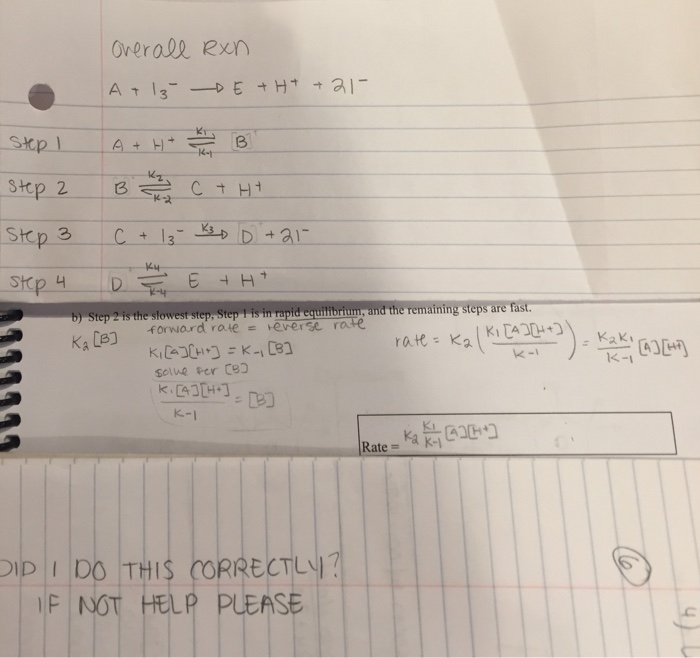 overall rxn
A + I3⁻ → E + H⁺ + 2I⁻
Step 1 A + H⁺ ⇌ B K1 K-1
Step 2 B ⇌ C + H⁺ K2 K-2
Step 3 C + I3⁻ → D + 2I⁻ K3
Step 4 D ⇌ E + H⁺ K4 K-4
b) Step 2 is the slowest step, Step 1 is in rapid equilibrium, and the remaining steps are fast.
K2[B] forward rate = reverse rate
K1[A][H⁺] = K-1[B]
solve for [B]
K1[A][H⁺] / K-1 = [B]
rate = K2 (K1[A][H⁺] / K-1) = K2K1 / K-1 [A][H⁺]
Rate = K2 K1 / K-1 [A][H⁺]
DID I DO THIS CORRECTLY?
IF NOT HELP PLEASE
6
4)